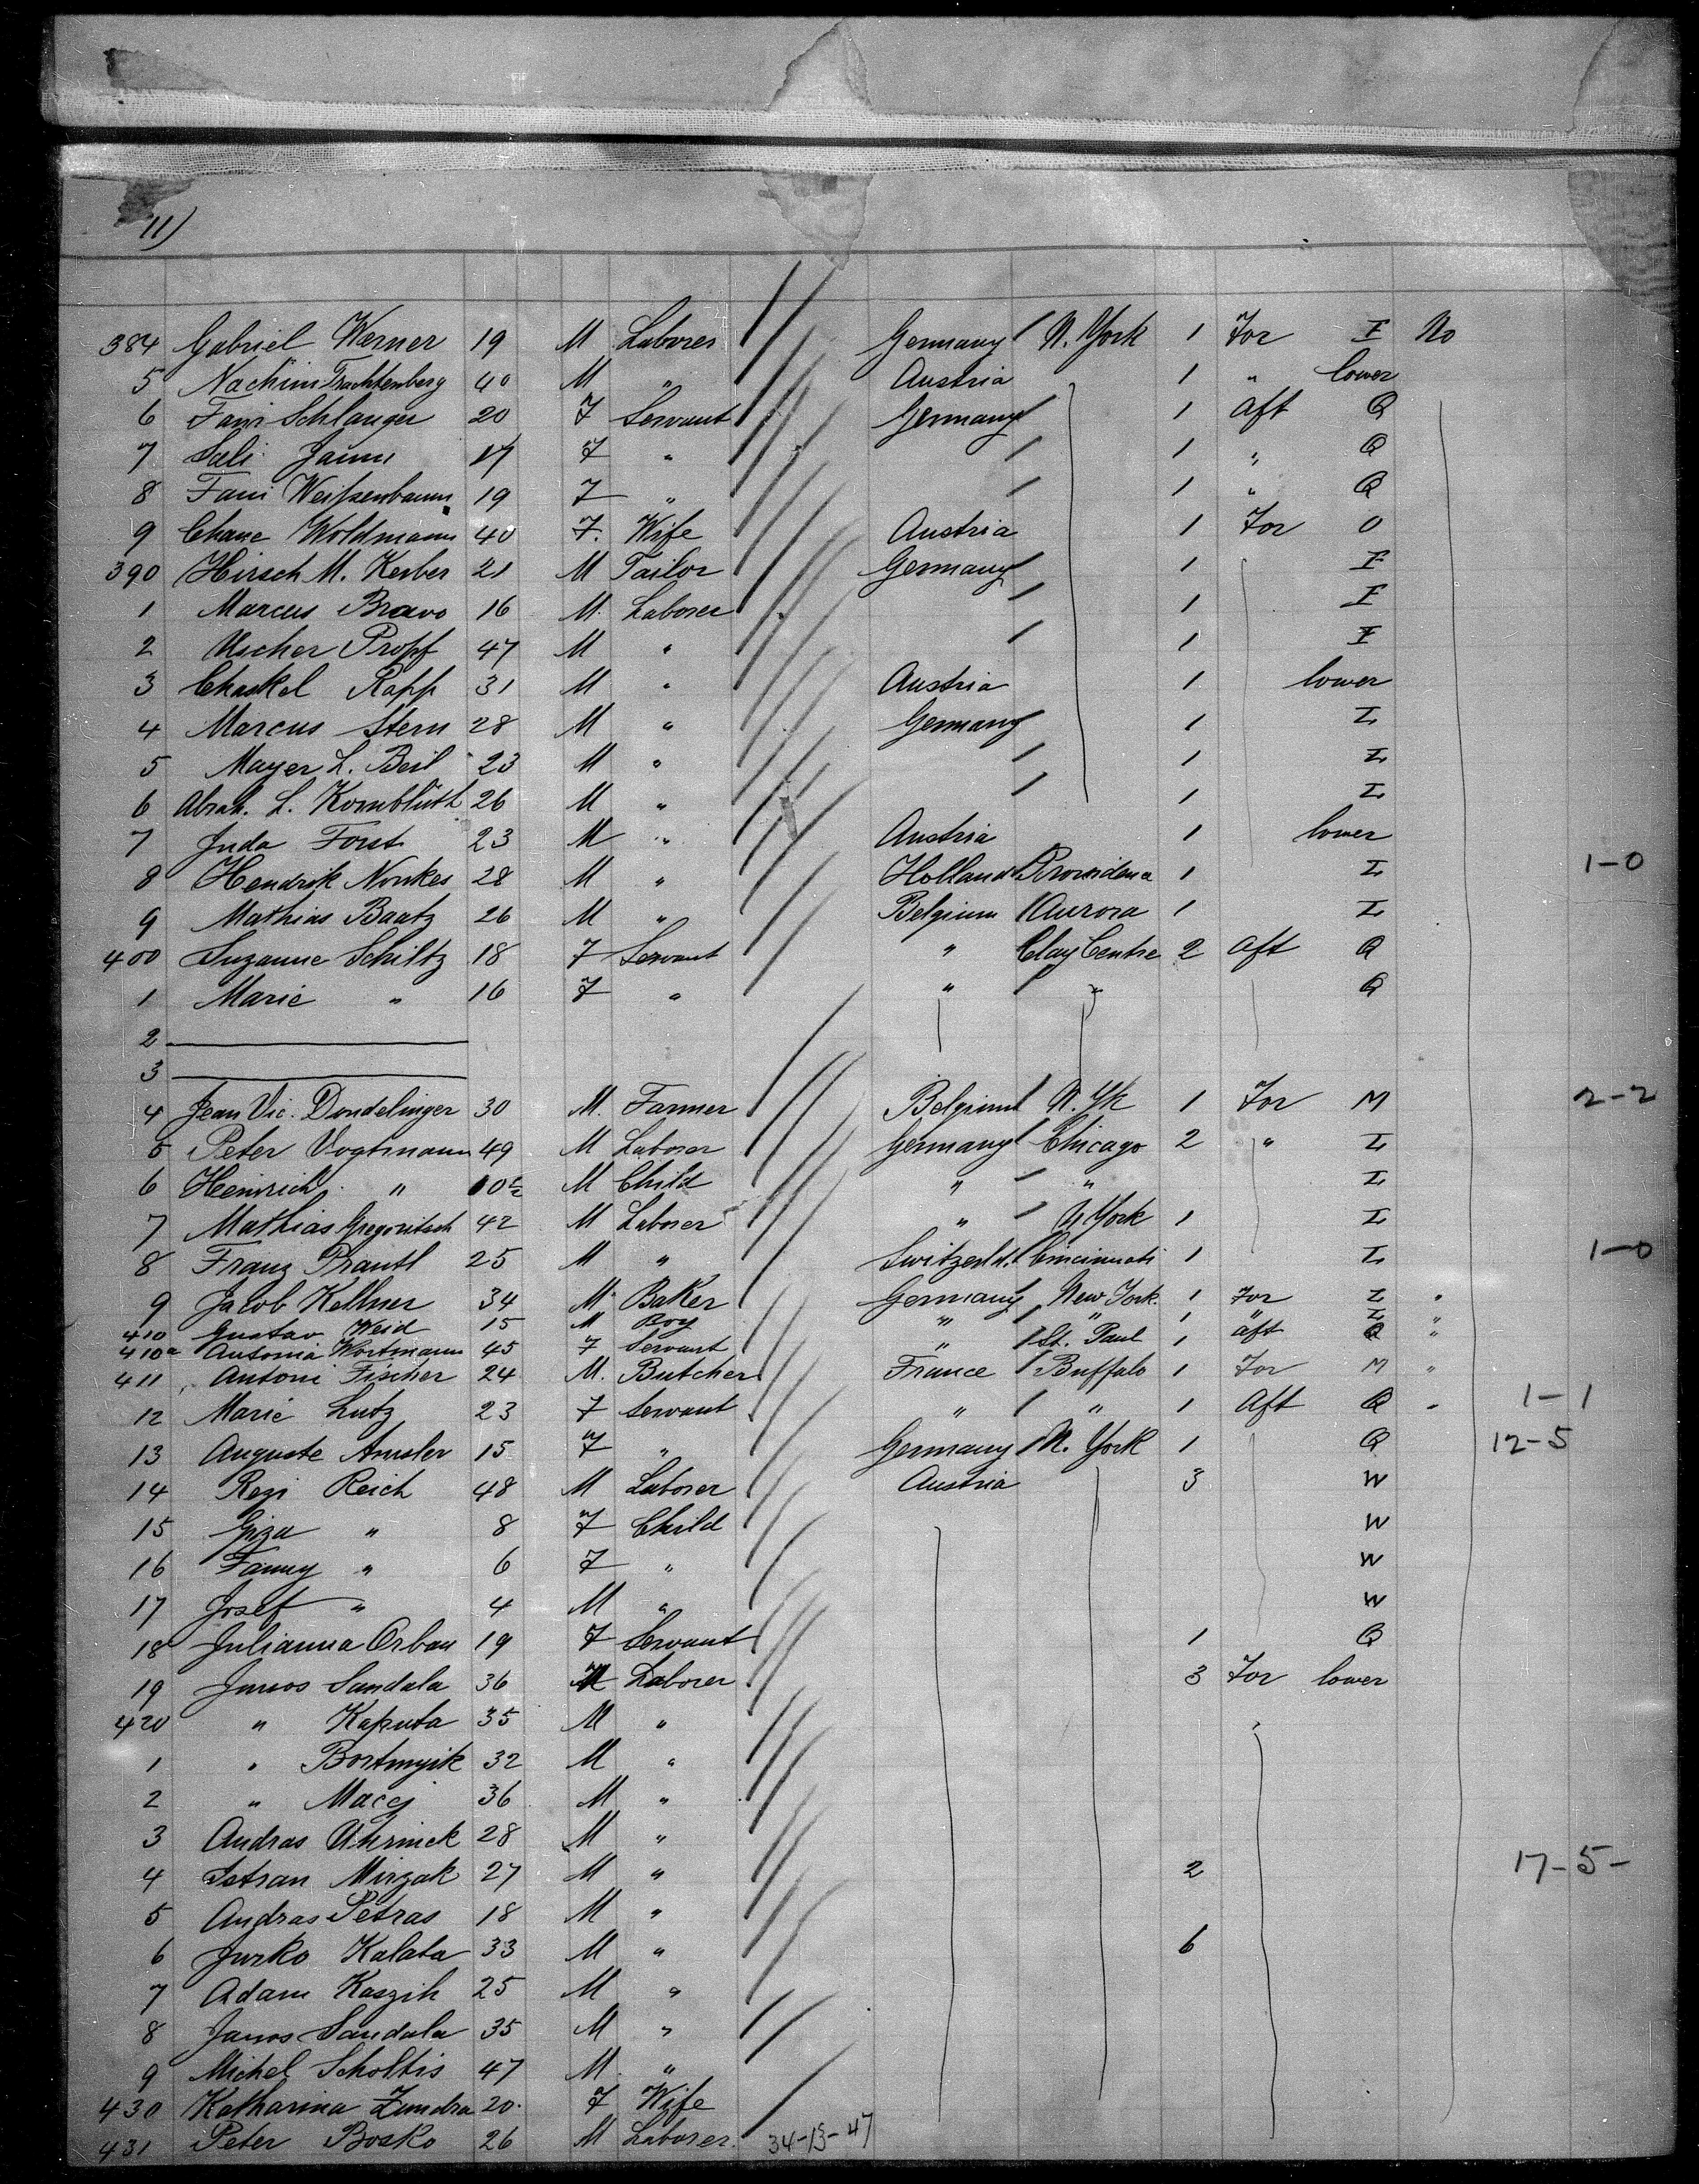 11)
384 Gabriel Werner 19 M Laborer Germany N. York 1 For I No
5 Nachim Trachtenberg 40 M " Austria 1 " lower
6 Fani Schlanger 20 F Servant Germany 1 Aft Q
7 Sali 17 F " 1 " Q
8 Fani Weitzenbaum 19 F " 1 " Q
9 Chane Woldmann 40 F. Wife Austria 1 For O
390 Hirsch M. Kerber 21 M Tailor Germany 1 I
1 Marcus Bravo 16 M. Laborer 1 I
2 Uscher Propf 47 M " 1 I
3 Chaskel Rapp 31 M " Austria 1 lower
4 Marcus Stern 28 M " Germany 1 I
5 Mayer L. Beil 23 M " 1 I
6 Abrah. L. Kornblüth 26 M " 1 I
7 Juda Forst 23 M " Austria 1 lower
8 Hendrik Nonkes 28 M " Holland Providence 1 I 1-0
9 Mathias Baatz 26 M " Belgium Aurora 1 I
400 Suzanne Schiltz 18 F Servant " Clay Centre 2 Aft Q
1 Marie " 16 F " " " Q
2
3
4 Jean Vic. Dondelinger 30 M. Farmer Belgium N. Yk 1 For M 2-2
5 Peter Vogtmann 49 M Laborer Germany Chicago 2 " I
6 Heinrich " M Child " " I
7 Mathias Gregoritsch 42 M Laborer " N York 1 I
8 Franz Prantl 25 M " Switzerld. Cincinnati 1 I 1-0
9 Jacob Kellner 34 M Baker Germany New York. 1 For I "
410 Gustav Weid 15 M Boy " " 1 " I "
410a Antonia Wortmann 45 F Servant " St. Paul 1 aft Q "
411 Antoni Fischer 24 M. Butcher France Buffalo 1 For M "
12 Marie Lutz 23 F Servant " " 1 Aft Q " 1-1
13 Auguste Amsler 15 F " Germany N. York 1 Q 12-5
14 Rezi Reich 48 M Laborer Austria 3 W
15 Giza " 8 F Child W
16 Fanny " 6 F " W
17 Josef " 4 M " W
18 Julianna Orban 19 F Servant 1 Q
19 Janos Sandala 36 M Laborer 3 For lower
420 " Kaputa 35 M " "
1 " Bortmyik 32 M "
2 " Macej 36 M "
3 Andras Uhrinek 28 M "
4 Istvan Mirzak 27 M " 2 17-5-
5 Andras Petras 18 M "
6 Jurko Kalata 33 M " 6
7 Adam Kaszik 25 M "
8 Janos Sandala 35 M "
9 Michel Scholtis 47 M "
430 Katharina Zundra 20. F Wife
431 Peter Bosko 26 M Laborer. 34-13-47